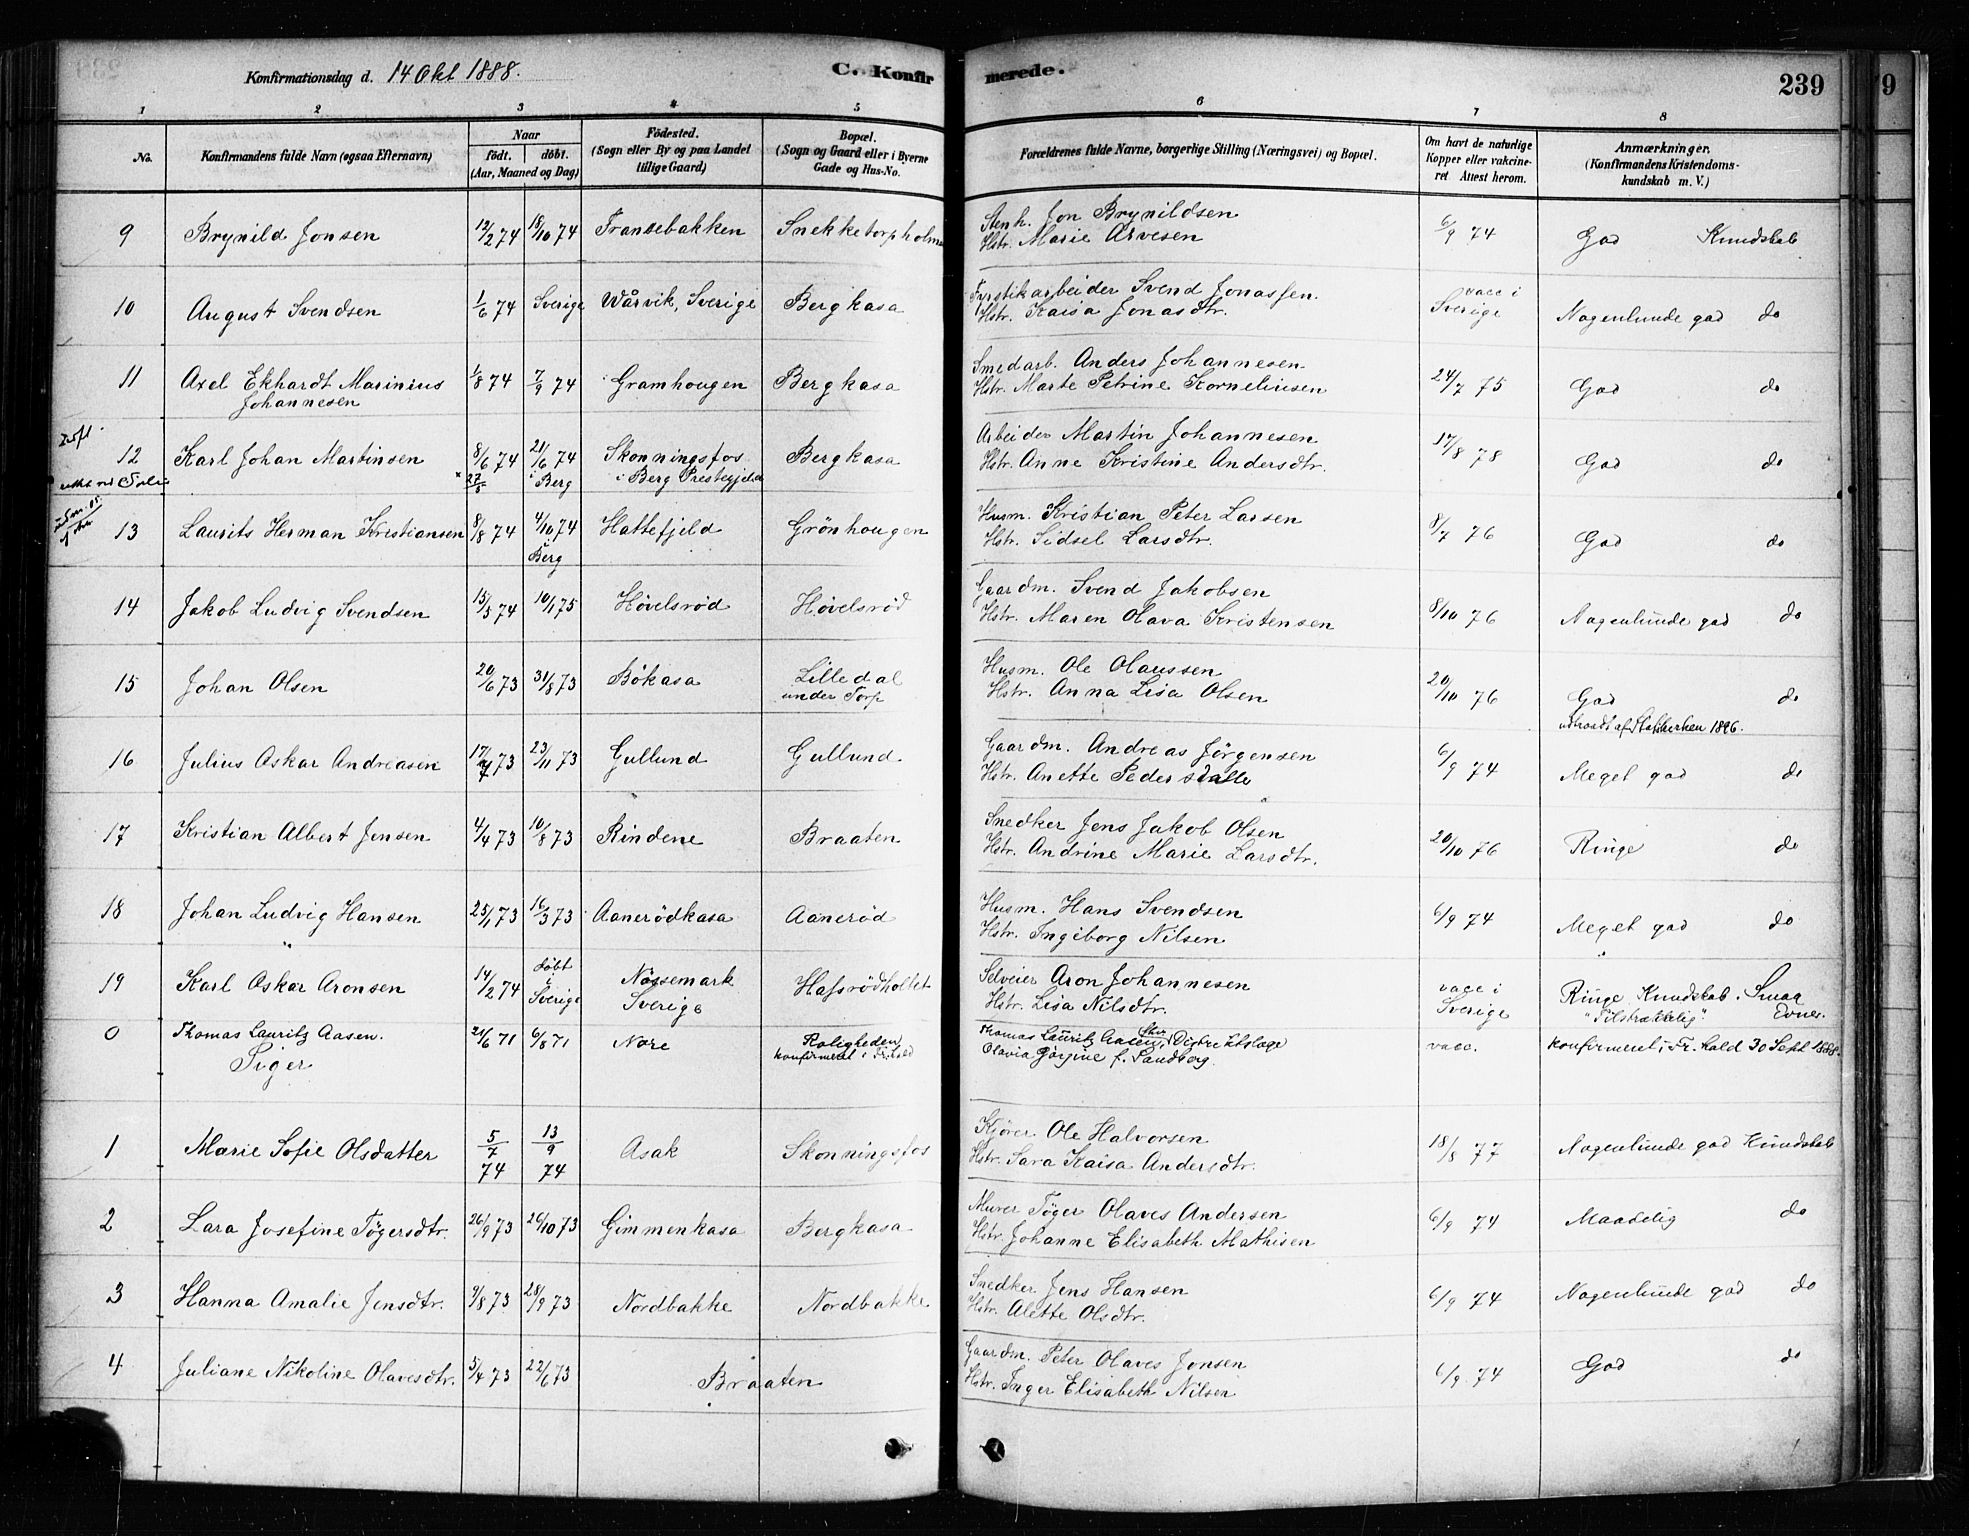 Konfirmationsdag d. 14 Okt 1888.
C. Konfirmerede.
239
1 2 3 4 5 6 7 8
No.
Konfirmandens fulde Navn (ogsaa Efternavn)
Naar
födt. döbt.
(Aar, Maaned og Dag)
Födested.
(Sogn eller By og paa Landet
tillige Gaard)
Bopæl.
(Sogn og Gaard eller i Byerne
Gade og Hus-No.
Forældrenes fulde Navne, borgerlige Stilling (Næringsvei) og Bopæl.
Om havt de naturlige
Kopper eller vakcine-
ret Attest herom.
Anmærkninger.
(Konfirmandens Kristendoms-
kundskab m. V.)
9 Brynild Jonsen 12/2 74 18/10 74 Fransebakken Snekketorpholm Stenh. Jon Brynildsen 6/9 74 God Kundskab
Hstr. Marie Arvesen
10 August Svendsen 1/6 74 Sverige Wårvik, Sverige Bergkasa Fyrstikarbeider Svend Jonassen. vacc i
Hstr. Kaisa Jonasdtr. Sverige Nogenlunde god do
11 Axel Ekhardt Marinius 1/8 74 7/9 74 Gramhougen Bergkasa Smedarb. Anders Johannesen
Johannesen Hstr. Marte Petrine Korneliusen 24/7 75 God do
12 Karl Johan Martinsen 8/6 74 21/6 74 Skonningsfos Bergkasa Arbeider Martin Johannesen 17/8 78 God do
27/5 i Berg i Berg Prestegjeld Hstr. Anne Kristine Andersdtr.
13 Laurits Herman Kristiansen 8/8 74 4/10 74 Hattefjeld Grönhougen Husm. Kristian Peter Larsen 8/7 76 God do
Berg Hstr. Sidsel Larsdtr.
14 Jakob Ludvig Svendsen 15/3 74 10/1 75 Hövelsröd Hövelsröd Gaardm. Svend Jakobsen
Hstr. Maren Olava Kristensen 8/10 76 Nogenlunde god do
15 Johan Olsen 20/6 73 31/8 73 Bökasa Lilledal Husm. Ole Olaussen
under Torp Hstr. Anna Lisa Olsen 20/10 76 God do
udtraadt af Statskirken 1896.
16 Julius Oskar Andreasen 17/7 73 23/11 73 Gullund Gullund Gaardm. Andreas Jörgensen 6/9 74 Meget god do
Hstr. Anette Pedersdatter
17 Kristian Albert Jensen 4/4 73 10/8 73 Rindene Braaten Snedker Jens Jakob Olsen 20/10 76 Ringe do
Hstr. Andrine Marie Larsdtr.
18 Johan Ludvig Hansen 25/1 73 16/3 73 Aanerödkasa Aaneröd Husm. Hans Svendsen 6/9 74 Meget god do
Hstr. Ingeborg Nilsen
19 Karl Oskar Aronsen 14/2 74 döbt i Sverige Nössemark Sverige Hafsrödholtet Selveier Aron Johannesen vacc i Sverige Ringe Kundskab. Smaa Evner.
Hstr. Lisa Nilsdtr. "Tilstrækkelig".
0 Thomas Lauritz Aasen. 21/6 71 6/8 71 Nore Roligheden Thomas Lauritz Aasen, Distriktslæge vacc. konfirmeret i Fr.hald 30 Sept 1888.
Siger konfirmeret i Fr.hald Olavia Görgine f. Sandberg.
1 Marie Sofie Olsdatter 5/7 74 13/9 74 Asak Skonningsfos Kjörer Ole Halvorsen 18/8 77 Nogenlunde god Kundskab
Hstr. Sara Kaisa Andersdtr.
2 Lara Josefine Tögersdtr. 26/9 73 26/10 73 Gimmenkasa Bergkasa Murer Töger Olaves Andersen 6/9 74 Maadelig do
Hstr. Johanne Elisabeth Mathisen
3 Hanna Amalie Jensdtr. 9/8 73 28/9 73 Nordbakke Nordbakke Snedker Jens Hansen 6/9 74 Nogenlunde god do
Hstr. Alette Olsdtr.
4 Juliane Nikoline Olavesdtr. 5/4 73 22/6 73 Braaten Gaardm. Peter Olaves Jonsen 6/9 74 God do
Hstr. Inger Elisabeth Nilsen